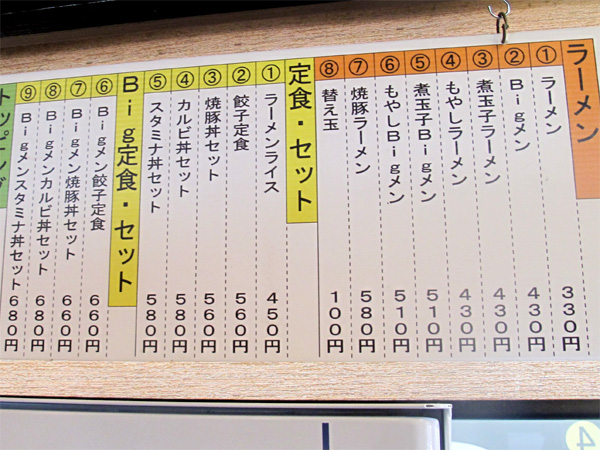 ラーメン
① ラーメン 330円
② Bigメン 430円
③ 煮玉子ラーメン 430円
④ もやしラーメン 430円
⑤ 煮玉子Bigメン 510円
⑥ もやしBigメン 510円
⑦ 焼豚ラーメン 580円
⑧ 替え玉 100円
定食・セット
① ラーメンライス 450円
② 餃子定食 560円
③ 焼豚丼セット 560円
④ カルビ丼セット 580円
⑤ スタミナ丼セット 580円
Big定食・セット
⑥ Bigメン餃子定食 660円
⑦ Bigメン焼豚丼セット 660円
⑧ Bigメンカルビ丼セット 680円
⑨ Bigメンスタミナ丼セット 680円
トッピング
4